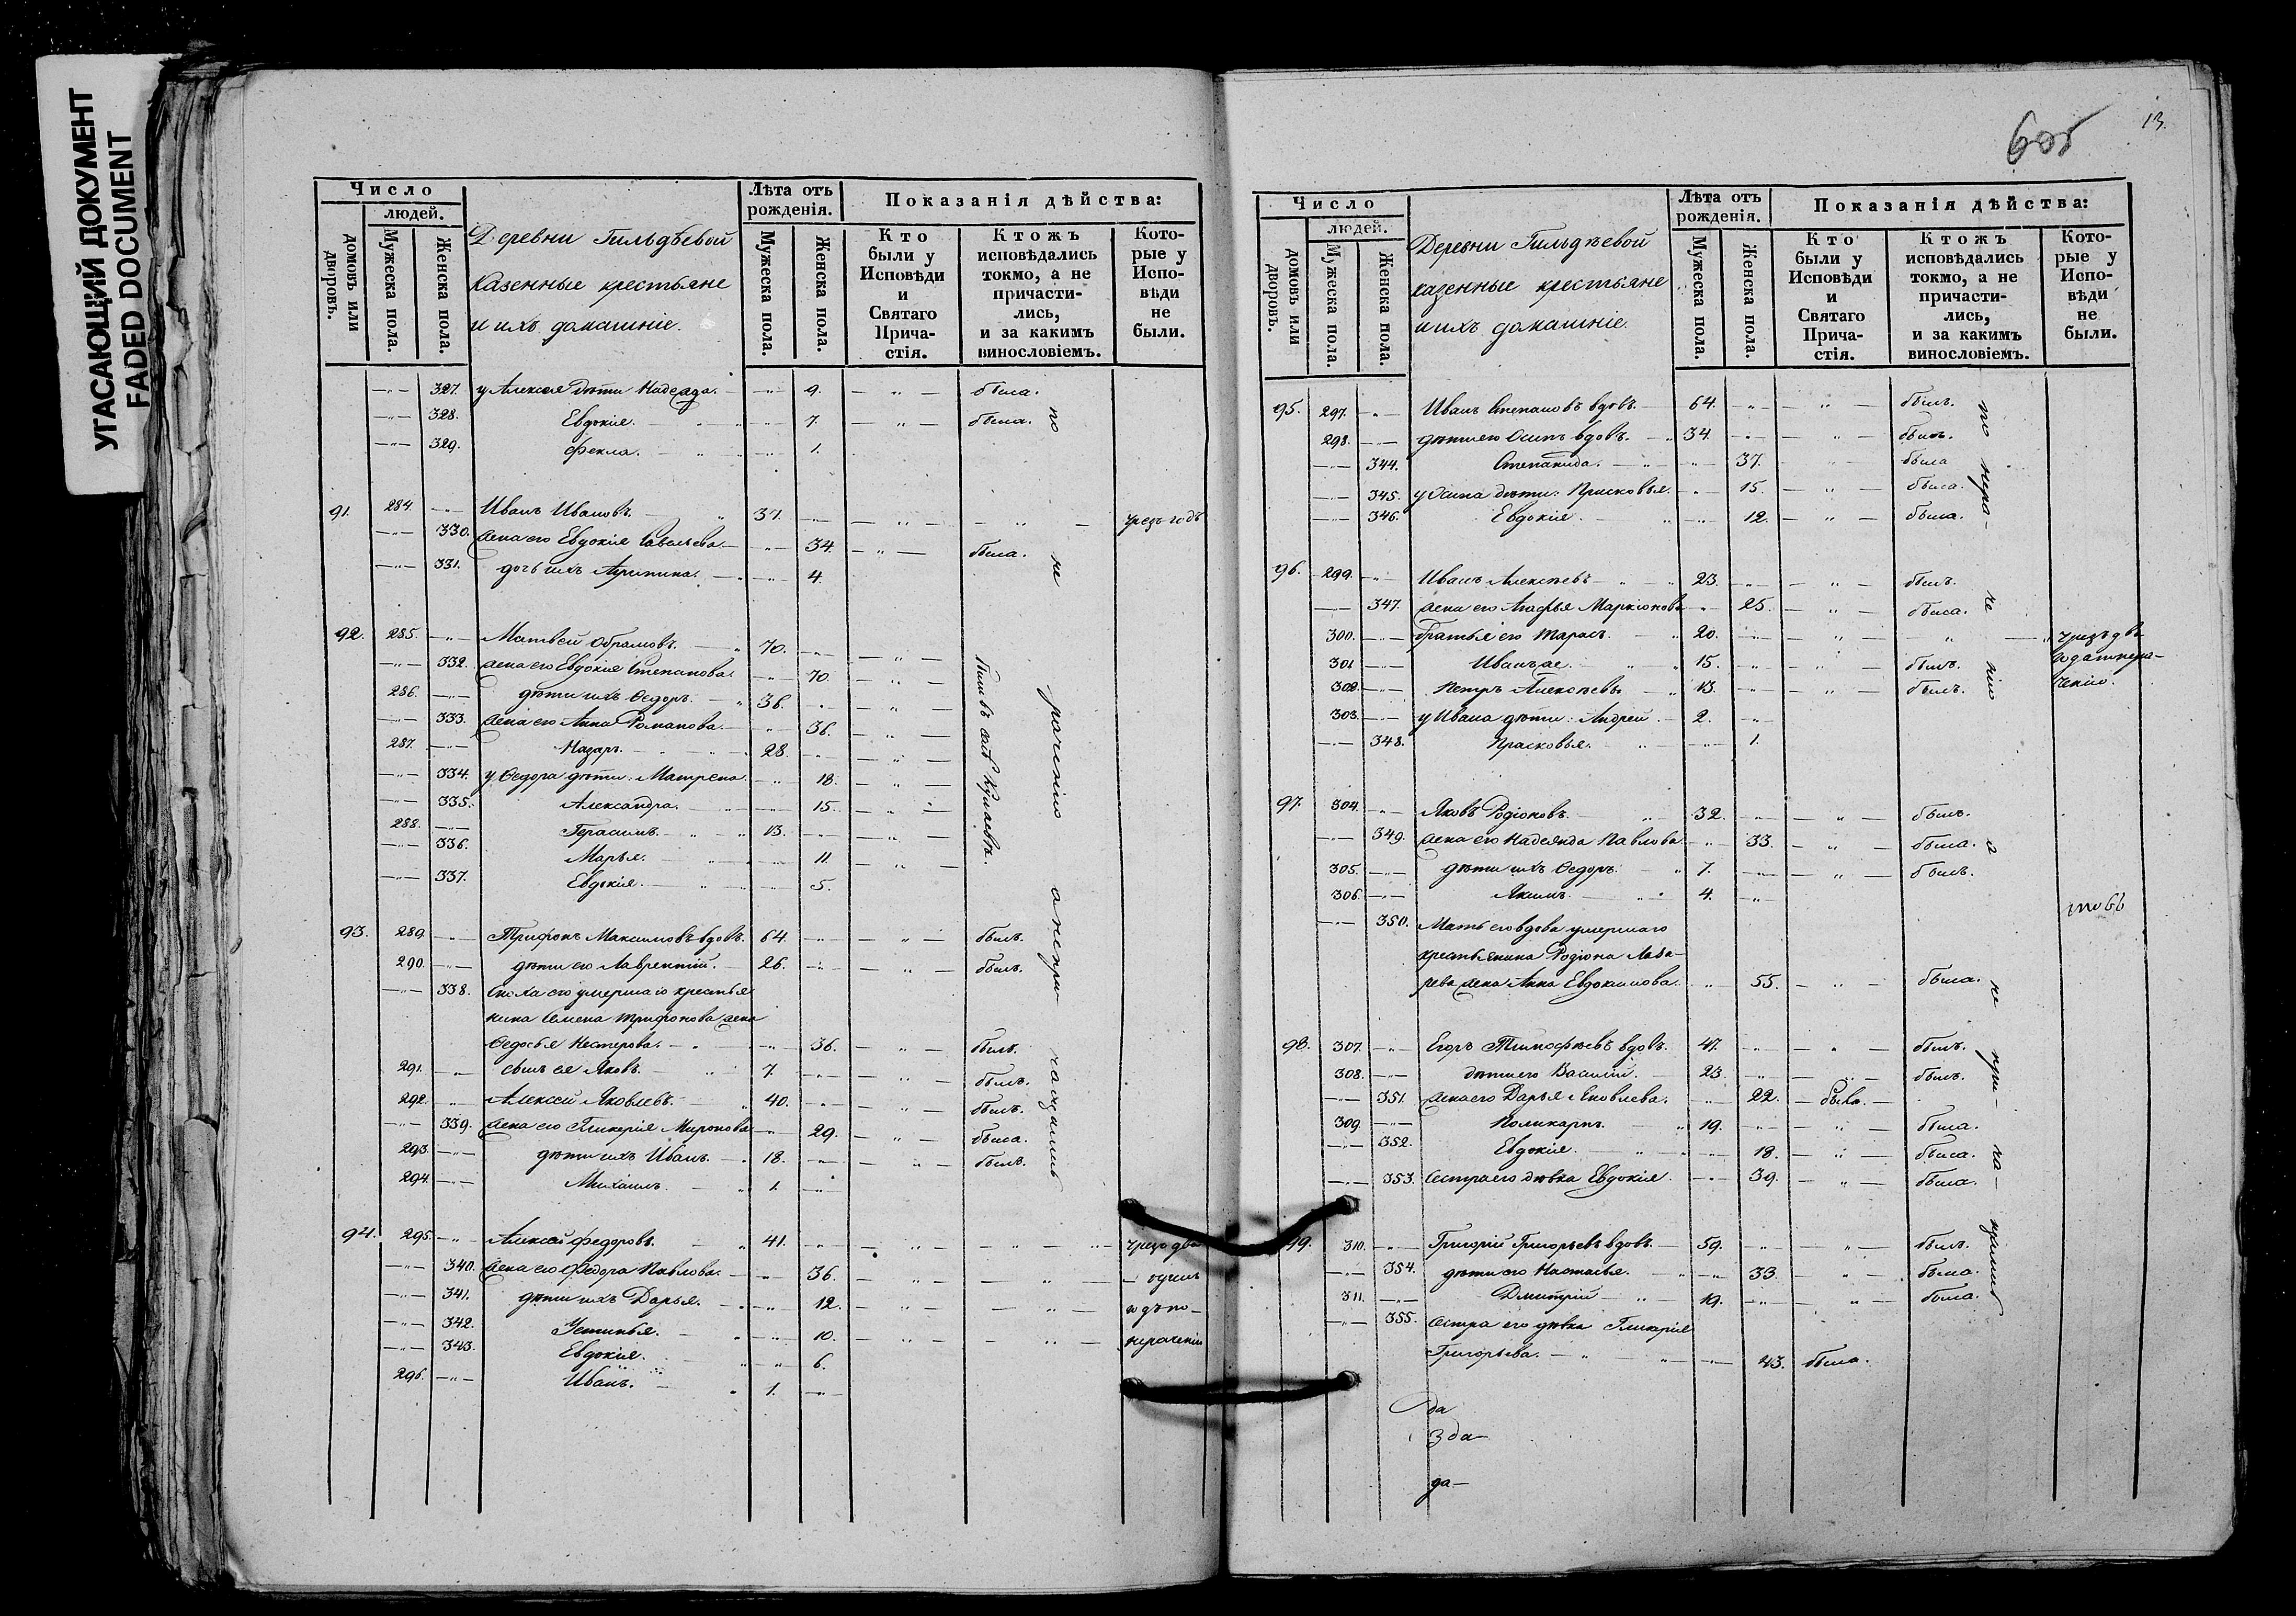 УГАСАЮЩИЙ ДОКУМЕНТ
FADED DOCUMENT
Число
людей.
домовъ или дворовъ.
Мужеска пола.
Женска пола.
Деревни Гильдѣевой
казенные крестьяне
и ихъ домашніе.
Лѣта отъ рожденія.
Мужеска пола.
Женска пола.
Показанія дѣйства:
Кто были у Исповѣди и Святаго Прича-стія.
Ктожъ исповѣдались токмо, а не причасти-лись, и за какимъ винословіемъ.
Кото-рые у Испо-вѣди не были.
327. у Алексея дѣти Надежда. 9. была.
328. Евдокія. 7. была.
329. Фекла. 1.
91. 284. Иванъ Ивановъ. 37. чрезъ годъ
330. жена его Евдокія Савельева. 34. была.
331. дочь ихъ 4.
92. 285. Матвей Обрамовъ. 70.
332. жена его Евдокія Степанова. 70.
286. дѣти ихъ Ѳедоръ. 36.
333. жена его Анна Романова. 36.
287. Назаръ. 28.
334. у Ѳедора дѣти: Матрена. 18.
335. Александра. 15.
288. Герасимъ. 13.
336. Марья. 11.
337. Евдокія. 5.
93. 289. Трифонъ Максимовъ вдовъ. 64. былъ.
290. дѣти его Лаврентій. 26. былъ.
338. Сноха его умершаго крестья
нина Семена Трифонова жена
Ѳедосья Нестерова. 36. былъ.
291. сынъ ея Яковъ. 7. былъ.
292. Алексей Яковлевъ. 40. былъ.
339. жена его Гликерія Миронова 29. была.
293. дѣти ихъ Иванъ. 18. былъ.
294. Михаилъ. 1.
94. 295. Алексей Федоровъ. 41. чрезъ два
340. жена его Ѳедора Павлова. 36. одинъ
341. дѣти ихъ Дарья. 12. годъ по-
342. Устинья. 10. нераченію
343. Евдокія. 6.
296. Иванъ. 1.
по не раченію а непри-чащались
605
13.
Число
людей.
домовъ или дворовъ.
Мужеска пола.
Женска пола.
Деревни Гильдѣевой
казенные крестьяне
и ихъ домашніе.
Лѣта отъ рожденія.
Мужеска пола.
Женска пола.
Показанія дѣйства:
Кто были у Исповѣди и Святаго Прича-стія.
Ктожъ исповѣдались токмо, а не причасти-лись, и за какимъ винословіемъ.
Кото-рые у Испо-вѣди не были.
95. 297. Иванъ Степановъ вдовъ. 64. былъ.
298. дѣти его Осипъ вдовъ. 34. былъ.
344. Степанида. 37. была
345. у Осипа дѣти: Присковья. 15. была.
346. Евдокія. 12. была.
96. 299. Иванъ Алексѣевъ 23. былъ.
347. жена его Агафья Маркіонова 25. была.
300. братья его Тарасъ. 20. чрезъ два
301 Иванъ же. 15. былъ. года
302. Петръ Алексѣевъ 13. былъ.
303. у Ивана дѣти: Андрей 2.
348. Прасковья. 1.
97. 304. Яковъ Родіоновъ. 32. былъ.
349. жена его Надежда Павлова 33. была.
305. дѣти ихъ Ѳедоръ. 7. былъ.
306. Якимъ. 4.
350. Мать его вдова умершаго
крестьянина Родіона Лаза-
рева жена Анна Евдокимова. 55. была.
98. 307. Егоръ Тимофѣевъ вдовъ. 47. былъ.
308. дѣти его Василій. 23. былъ.
351. жена его Дарья Яковлева. 22. была.
309. Поликарпъ. 19. была.
352. Евдокія. 18. была.
353. Сестра его дѣвка Евдокія. 39. была.
99. 310. Григорій Григорьевъ вдовъ. 59. былъ.
354. дѣти его Настасья. 33. была.
311. Дмитрій 19. была.
355. Сестра его дѣвка Гликерія
Григорьева. 43. была.
да
3 да
да